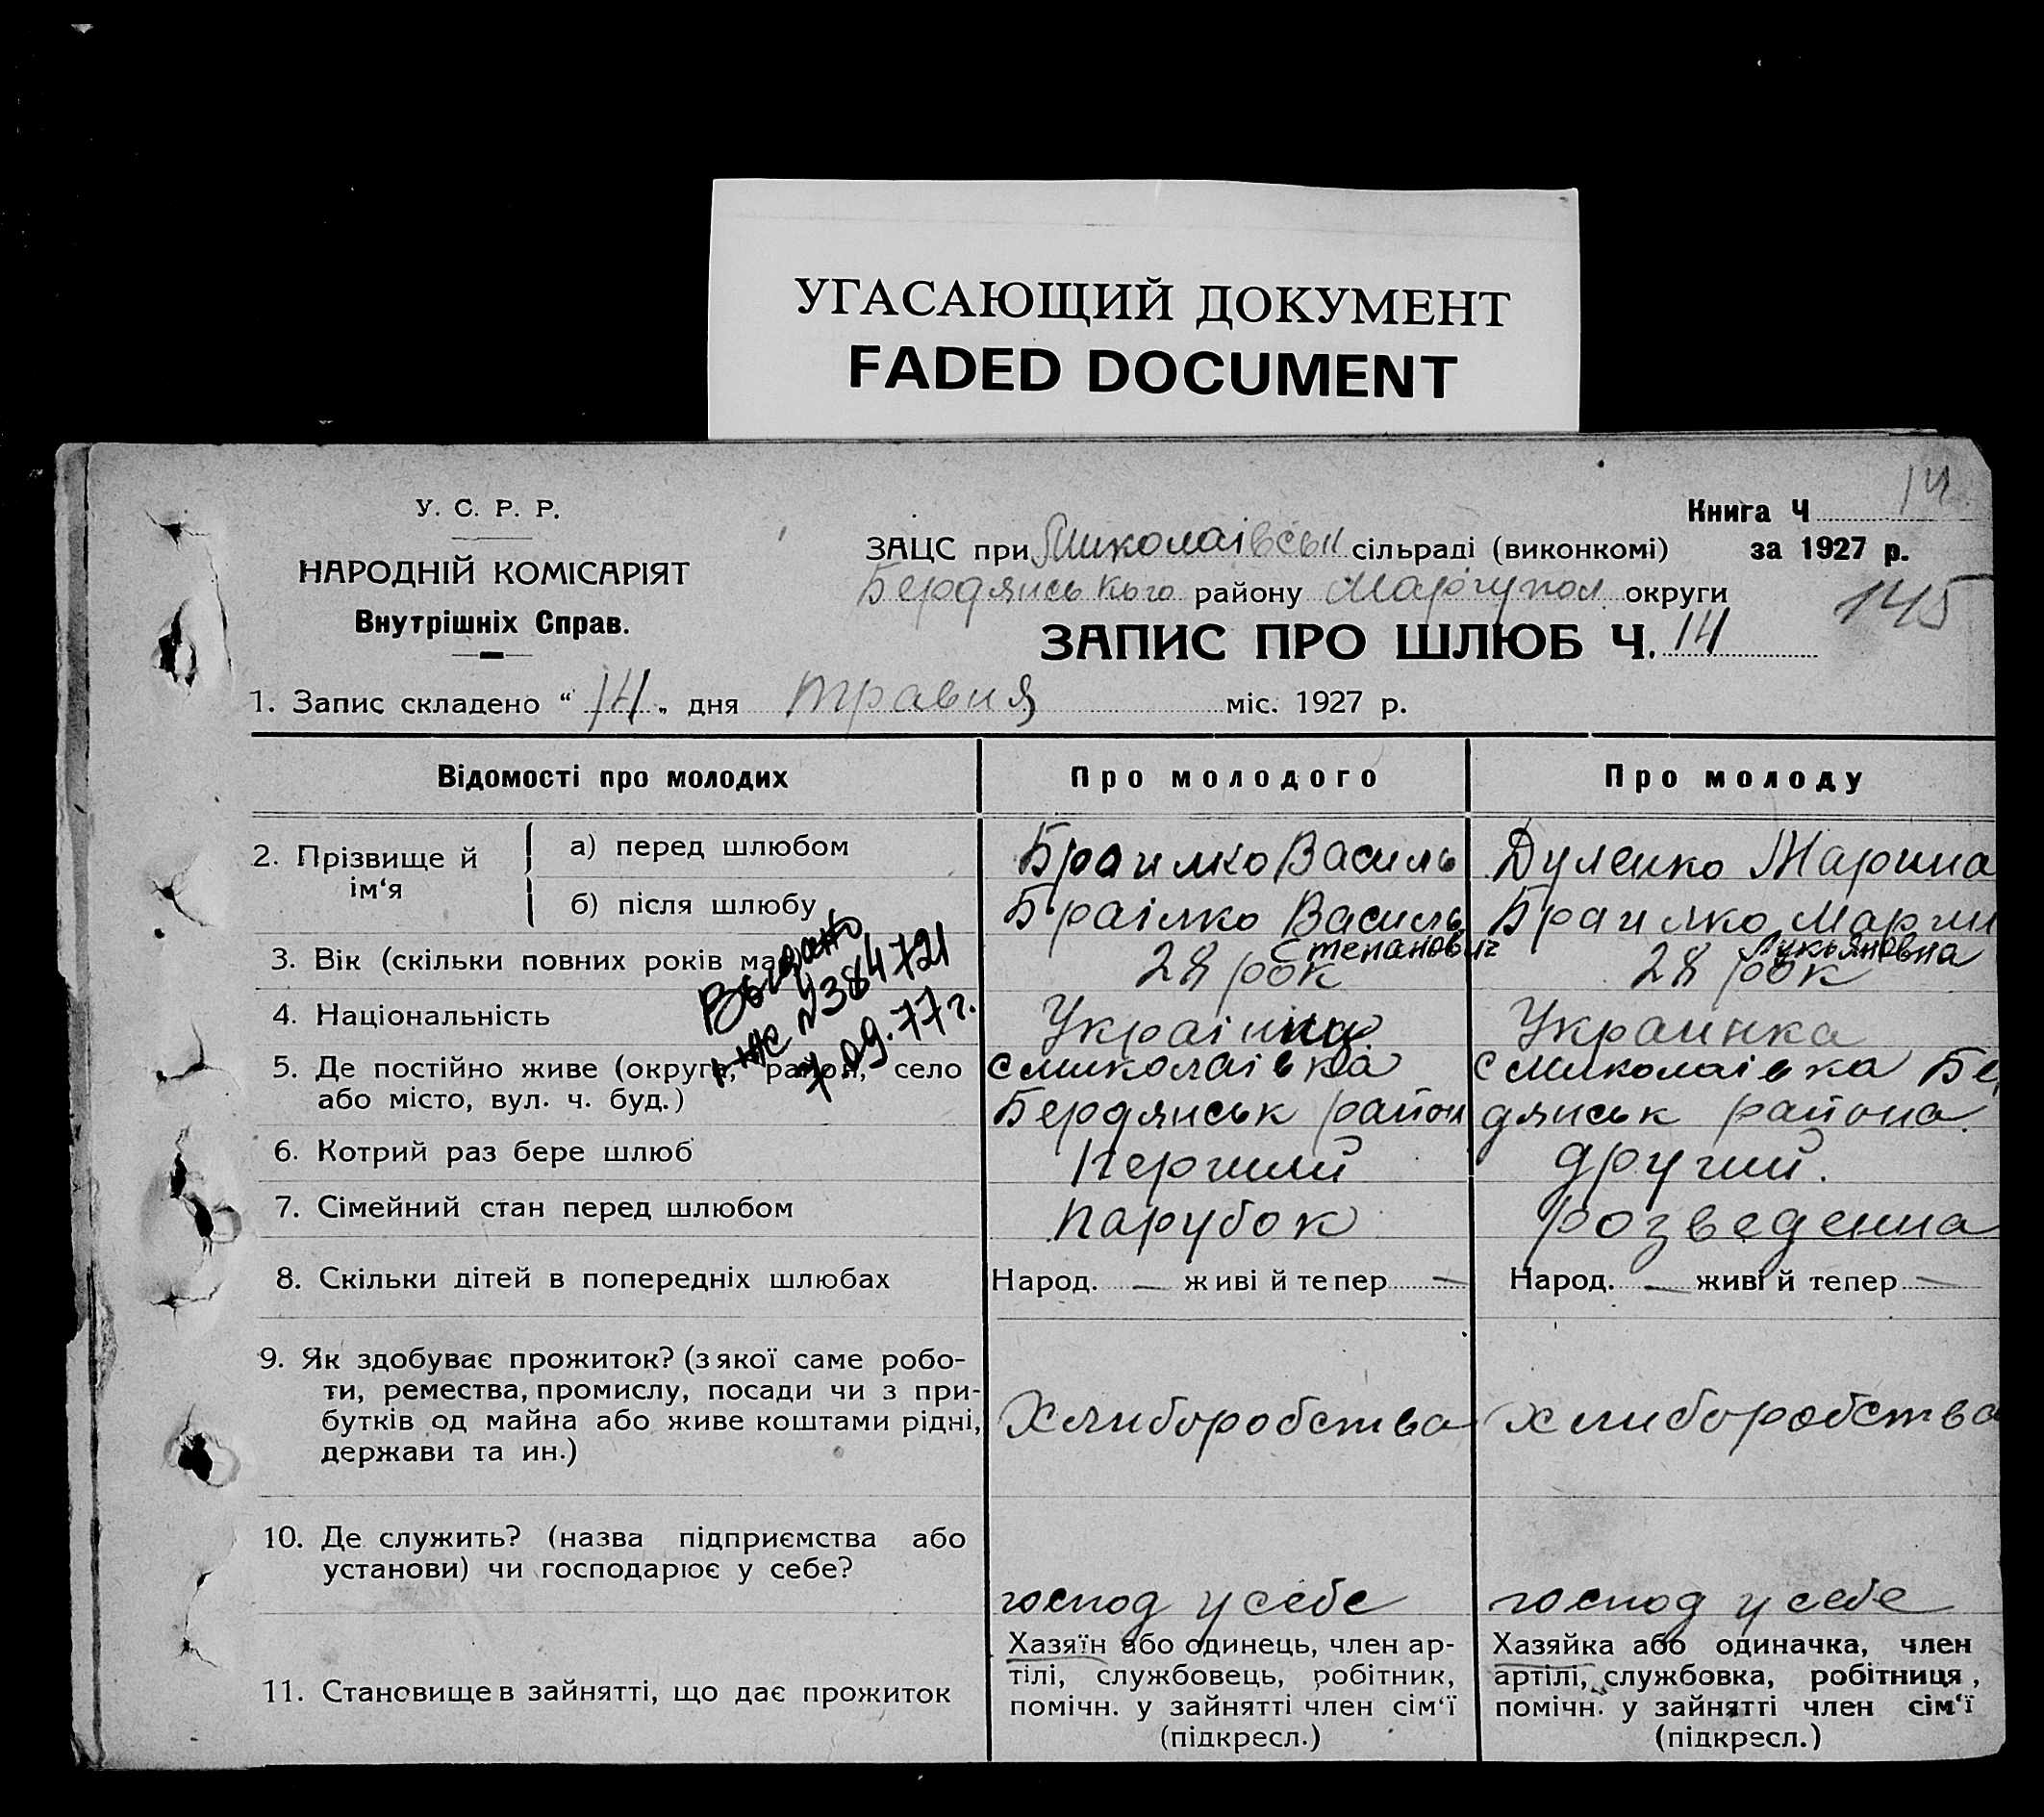 УГАСАЮЩИЙ ДОКУМЕНТ
FADED DOCUMENT
У. С. Р. Р.
НАРОДНІЙ КОМІСАРІЯТ
Внутрішніх Справ.
Книга Ч 14
ЗАЦС при Миколаівськ сільраді (виконкомі) за 1927 р.
Бердянського району Маріупол округи
145
ЗАПИС ПРО ШЛЮБ Ч. 14
1. Запис складено “ 14 „ дня травня міс. 1927 р.
Відомості про молодих Про молодого Про молоду
2. Прізвище й ім‘я
а) перед шлюбом Браилко Василь Дуленко Марина
б) після шлюбу Браілко Василь Браилко Марин
Степанович Лукьяновна
3. Вік (скільки повних років ма 28 рок 28 рок
Выдано
№ 384721
7.09.77г.
4. Національність Украінка Украинка
5. Де постійно живе (округа, район, село с миколаівка с миколаівка Бе
або місто, вул. ч. буд.) Бердянськ район дянськ района
6. Котрий раз бере шлюб Перший другий.
7. Сімейний стан перед шлюбом парубок розведенна
8. Скільки дітей в попередніх шлюбах Народ. — живі й тепер — Народ. — живі й тепер —
9. Як здобуває прожиток? (з якої саме робо-
ти, ремества, промислу, посади чи з при-
бутків од майна або живе коштами рідні, Хлиборобства хлиборобства
держави та ин.)
10. Де служить? (назва підприємства або
установи) чи господарює у себе?
господ у себе господ у себе
11. Становище в зайнятті, що дає прожиток
Хазяїн або одинець, член ар-
тілі, службовець, робітник,
помічн. у зайнятті член сім‘ї
(підкресл.)
Хазяйка або одиначка, член
артілі, службовка, робітниця,
помічн. у зайнятті член сім‘ї
(підкресл.)